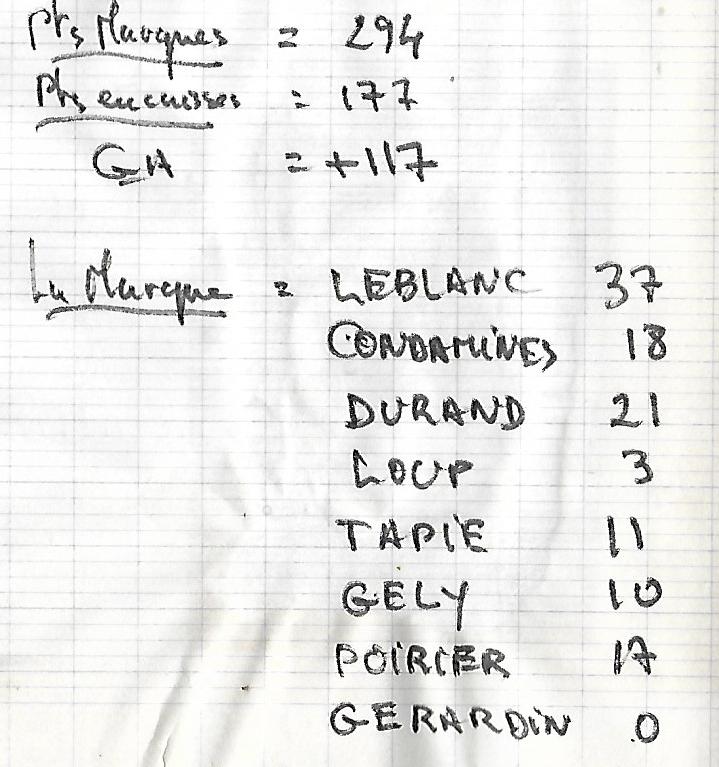 Pts Marques = 294
Pts encaisses = 177
GA = +117
La Marque = LEBLANC 37
CONDAMINES 18
DURAND 21
LOUP 3
TAPIE 11
GELY 10
POIRIER 17
GERARDIN 0